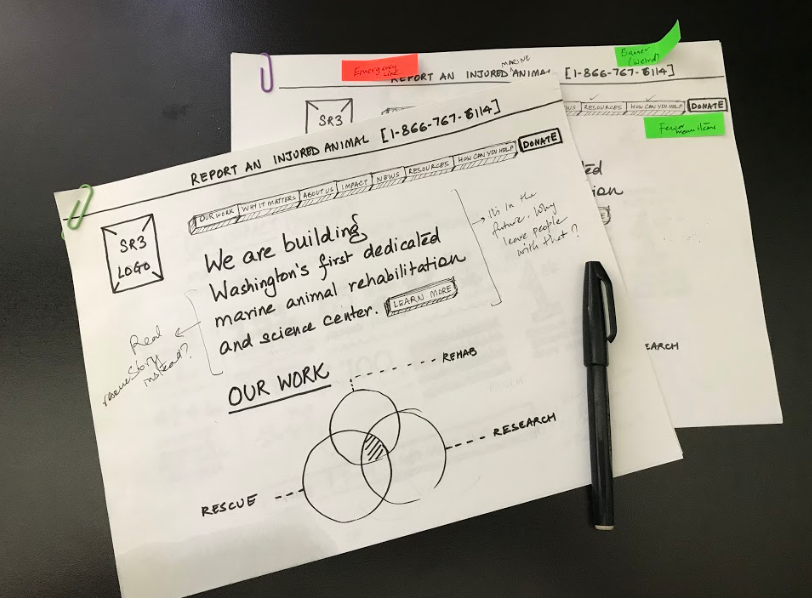 Emergency
Banner
(weird)
MARINE
REPORT AN INJURED ANIMAL [1-866-767-6114]
SR3
RESOURCES HOW CAN YOU HELP DONATE
Fewer
menu items
REPORT AN INJURED ANIMAL [1-866-767-6114]
SR3
LOGO
OUR WORK WHY IT MATTERS ABOUT US IMPACT NEWS RESOURCES HOW CAN YOU HELP DONATE
We are building
Washington's first dedicated
marine animal rehabilitation
and science center. LEARN MORE
in the
future. Why
leave people
with that?
Real
rescue story
instead?
OUR WORK
REHAB
RESEARCH
RESCUE